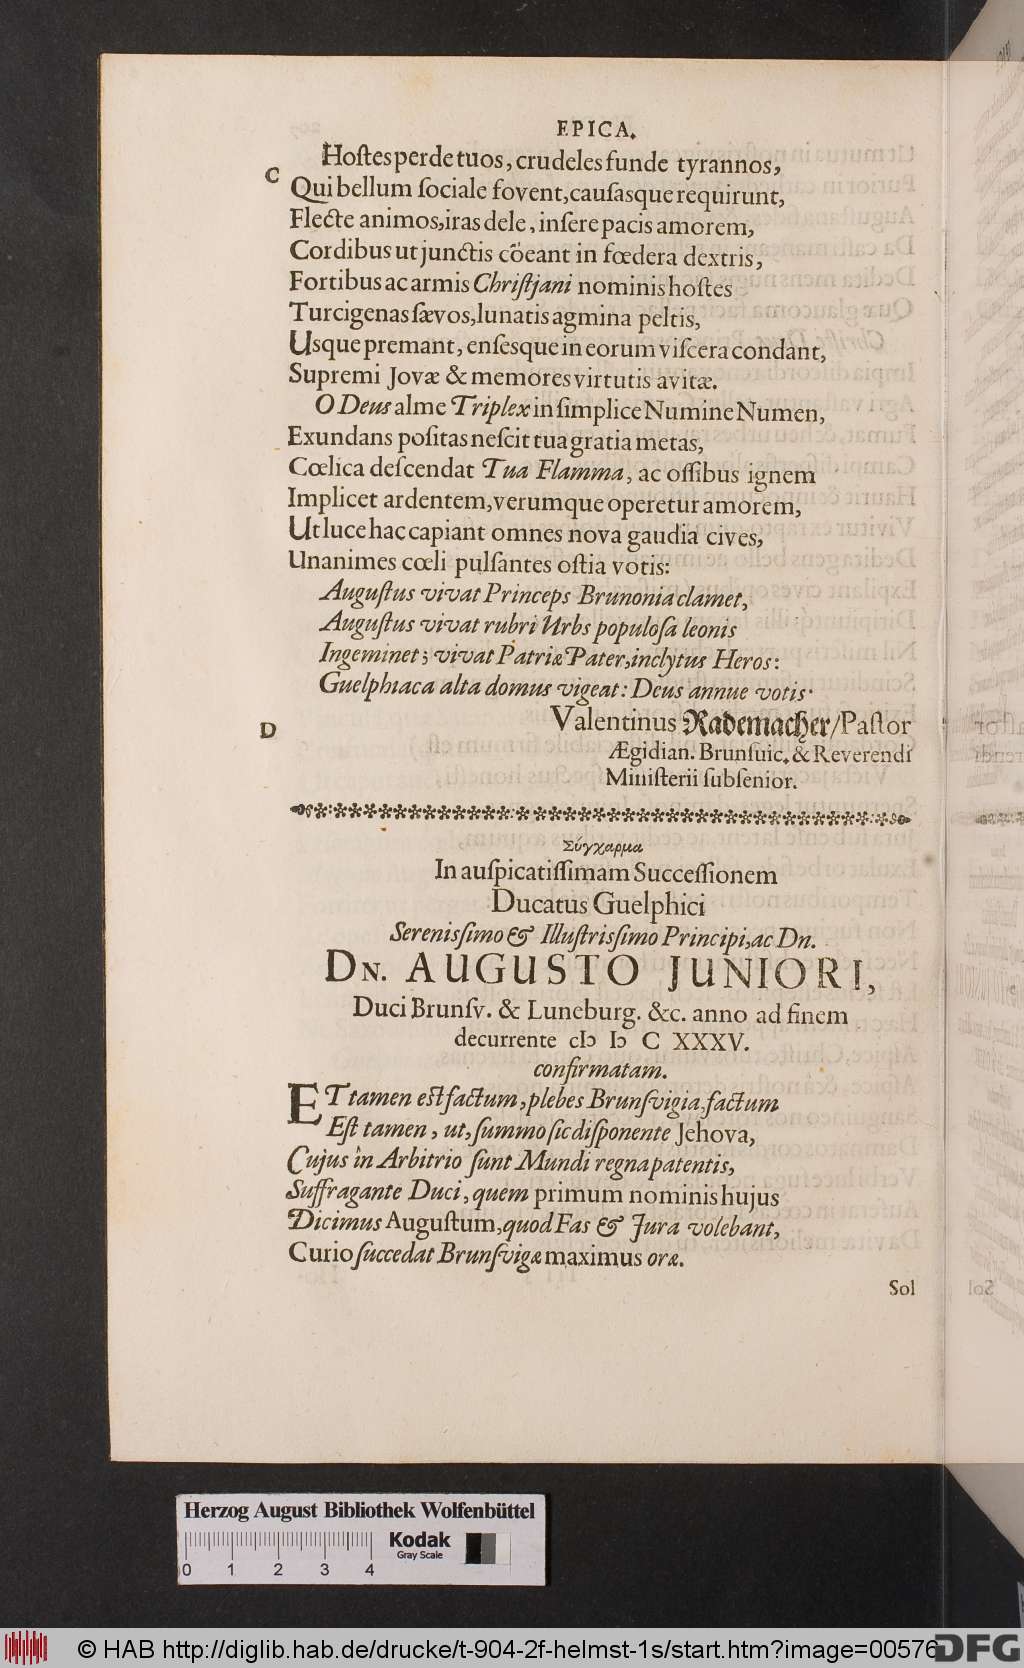 EPICA.
Hoſtes perde tuos, crudeles funde tyrannos,
C
Qui bellum ſociale fovent, cauſasque requirunt,
Flecte animos, iras dele, inſere pacis amorem,
Cordibus ut junctis cöeant in fœdera dextris,
Fortibus ac armis Chriſtjani nominis hoſtes
Turcigenas ſævos, lunatis agmina peltis,
Usque premant, enſesque in eorum viſcera condant,
Supremi Jovæ & memores virtutis avitæ.
O Deus alme Triplex in ſimplice Numine Numen,
Exundans poſitas neſcit tua gratia metas,
Cœlica deſcendat Tua Flamma, ac oſſibus ignem
Implicet ardentem, verumque operetur amorem,
Ut luce hac capiant omnes nova gaudia cives,
Unanimes cœli pulſantes oſtia votis:
Auguſtus vivat Princeps Brunonia clamet,
Auguſtus vivat rubri Urbs populoſa leonis
Ingeminet; vivat Patriæ Pater, inclytus Heros:
Guelphiaca alta domus vigeat: Deus annue votis.
D
Valentinus Rademacher/Paſtor
Ægidian. Brunſuic. & Reverendi
Miniſterii ſubſenior.
Σύγχαρμα
In auſpicatiſſimam Succeſſionem
Ducatus Guelphici
Sereniſſimo & Illuſtriſſimo Principi, ac Dn.
DN. AUGUSTO JUNIORI,
Duci Brunſv. & Luneburg. &c. anno ad finem
decurrente cIↄ Iↄ C XXXV.
confirmatam.
ET tamen eſt factum, plebes Brunſvigia, factum
Eſt tamen, ut, ſummo ſic diſponente Jehova,
Cujus in Arbitrio ſunt Mundi regna patentis,
Suffragante Duci, quem primum nominis hujus
Dicimus Auguſtum, quod Fas & Jura volebant,
Curio ſuccedat Brunſvigæ maximus oræ.
Sol
Herzog August Bibliothek Wolfenbüttel
Kodak
Gray Scale
0 1 2 3 4
© HAB http://diglib.hab.de/drucke/t-904-2f-helmst-1s/start.htm?image=00576
DFG